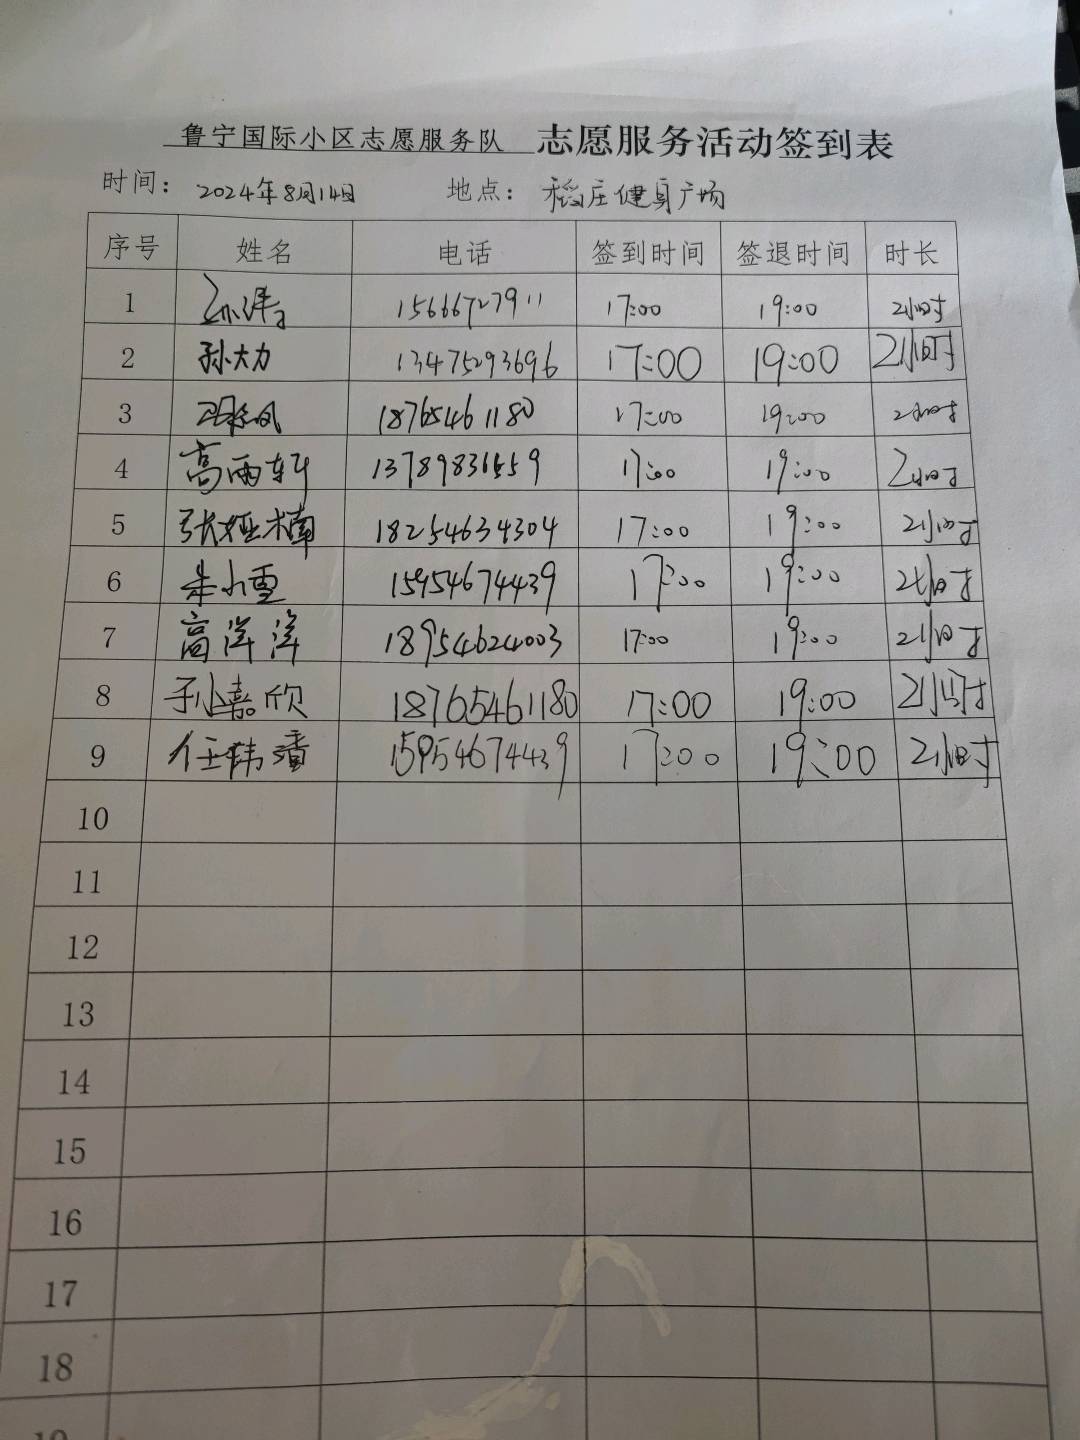 鲁宁国际小区志愿服务队 志愿服务活动签到表
时间： 2024年8月14日 地点： 稻庄健身广场
序号 姓名 电话 签到时间 签退时间 时长
1 孙涛 15666727911 17:00 19:00 2小时
2 孙大力 13475293696 17:00 19:00 2小时
3 18765461180 17:00 19:00 2小时
4 高雨轩 13789836559 17:00 19:00 2小时
5 张娅楠 18254634304 17:00 19:00 2小时
6 朱小雪 15954674439 17:00 19:00 2小时
7 高洋洋 18954624003 17:00 19:00 2小时
8 孙嘉欣 18765461180 17:00 19:00 2小时
9 任韩潼 15954674439 17:00 19:00 2小时
10
11
12
13
14
15
16
17
18
19